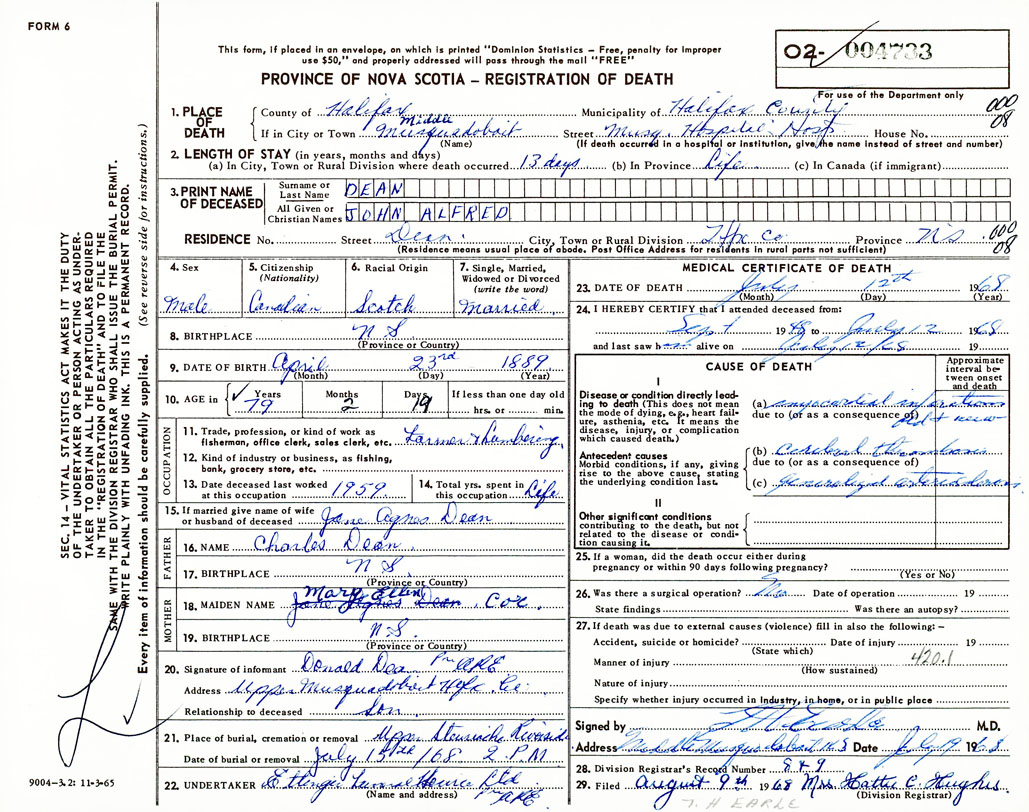 FORM 6
This form, if placed in an envelope, on which is printed "Dominion Statistics – Free, penalty for improper
use $50," and properly addressed will pass through the mail "FREE"
PROVINCE OF NOVA SCOTIA – REGISTRATION OF DEATH
02- 004733
For use of the Department only
000
08
1. PLACE OF DEATH
County of Halifax Municipality of Halifax County
If in City or Town Middle Musquodoboit Street Musq. Hospital, Hosp House No.
(Name) (If death occurred in a hospital or institution, give the name instead of street and number)
2. LENGTH OF STAY (in years, months and days)
(a) In City, Town or Rural Division where death occurred 13 days (b) In Province Life (c) In Canada (if immigrant)
3. PRINT NAME OF DECEASED
Surname or Last Name DEAN
All Given or Christian Names JOHN ALFRED
RESIDENCE No. Street Dean City, Town or Rural Division Hfx Co Province NS
000
08
(Residence means usual place of abode. Post Office Address for residents in rural parts not sufficient)
4. Sex Male
5. Citizenship (Nationality) Canadian
6. Racial Origin Scotch
7. Single, Married, Widowed or Divorced (write the word) Married
8. BIRTHPLACE N S
(Province or Country)
9. DATE OF BIRTH April 23rd 1889
(Month) (Day) (Year)
10. AGE in Years 79 Months 2 Days 19 If less than one day old hrs. or min.
OCCUPATION
11. Trade, profession, or kind of work as fisherman, office clerk, sales clerk, etc. Farmer & Lumbering
12. Kind of industry or business, as fishing, bank, grocery store, etc.
13. Date deceased last worked at this occupation 1959
14. Total yrs. spent in this occupation Life
15. If married give name of wife or husband of deceased Jane Agnes Dean
FATHER
16. NAME Charles Dean
17. BIRTHPLACE N S
(Province or Country)
MOTHER
Mary Ellen
18. MAIDEN NAME Jane Agnes Dean Cox
19. BIRTHPLACE N.S.
(Province or Country)
20. Signature of informant Donald Dean Per ARE
Address Upper Musquodoboit Hfx Co.
Relationship to deceased Son
21. Place of burial, cremation or removal Upper Stewiacke Riverside
Date of burial or removal July 15th /68 2 P.M
22. UNDERTAKER
(Name and address)
Per ARE
MEDICAL CERTIFICATE OF DEATH
23. DATE OF DEATH July 12th 1968
(Month) (Day) (Year)
24. I HEREBY CERTIFY that I attended deceased from:
Sept 1948 to July 12 1968
and last saw h alive on July 12/68 19
CAUSE OF DEATH
Approximate interval between onset and death
I
Disease or condition directly leading to death (This does not mean the mode of dying, e.g., heart failure, asthenia, etc. It means the disease, injury, or complication which caused death.)
(a) myocardial infarction
due to (or as a consequence of)
Antecedent causes
Morbid conditions, if any, giving rise to the above cause, stating the underlying condition last.
(b) cerebral thrombosis
due to (or as a consequence of)
(c) generalized arteriosclerosis
II
Other significant conditions contributing to the death, but not related to the disease or condition causing it.
25. If a woman, did the death occur either during pregnancy or within 90 days following pregnancy?
(Yes or No)
26. Was there a surgical operation? No Date of operation 19
State findings Was there an autopsy?
27. If death was due to external causes (violence) fill in also the following: –
Accident, suicide or homicide? Date of injury 19
(State which)
Manner of injury 420.1
(How sustained)
Nature of injury
Specify whether injury occurred in industry, in home, or in public place
Signed by M.D.
Address Middle Musquodoboit N.S Date July 19 1968
28. Division Registrar's Record Number 849
29. Filed August 9th 1968 Mrs Hattie C. Hughes
(Division Registrar)
T. H EARLE
SEC. 14 – VITAL STATISTICS ACT MAKES IT THE DUTY
OF THE UNDERTAKER OR PERSON ACTING AS UNDER-
TAKER TO OBTAIN ALL THE PARTICULARS REQUIRED
IN THE "REGISTRATION OF DEATH" AND TO FILE THE
SAME WITH THE DIVISION REGISTRAR WHO SHALL ISSUE THE BURIAL PERMIT.
WRITE PLAINLY WITH UNFADING INK. THIS IS A PERMANENT RECORD.
Every item of information should be carefully supplied. (See reverse side for instructions.)
9004-3.2: 11-3-65